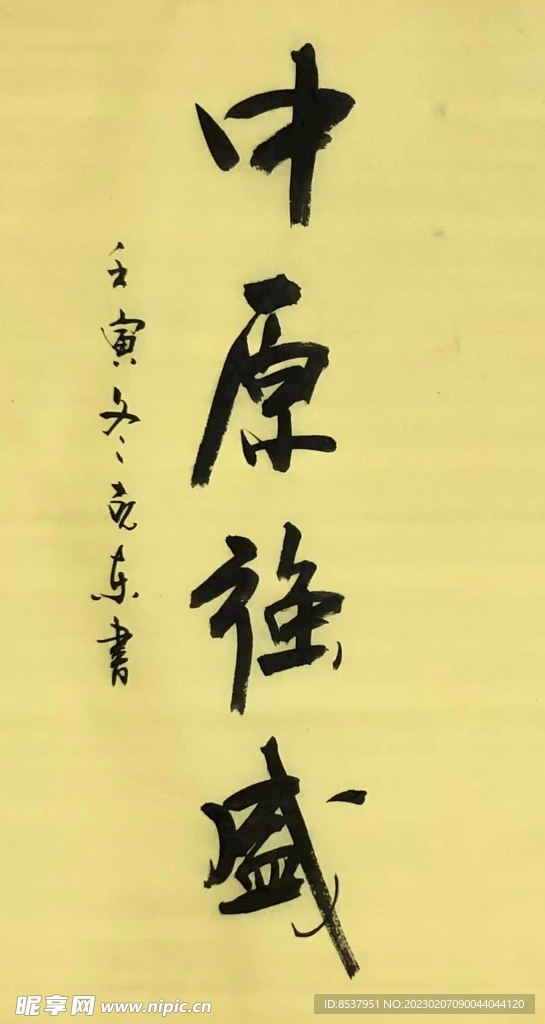 中原強盛
壬寅冬克东書
昵享网 www.nipic.cn
ID:8537951 NO:20230207090044044120